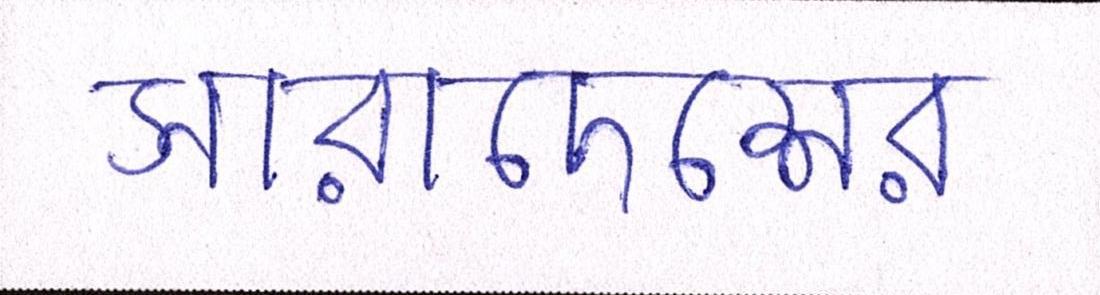 সারাদেশের